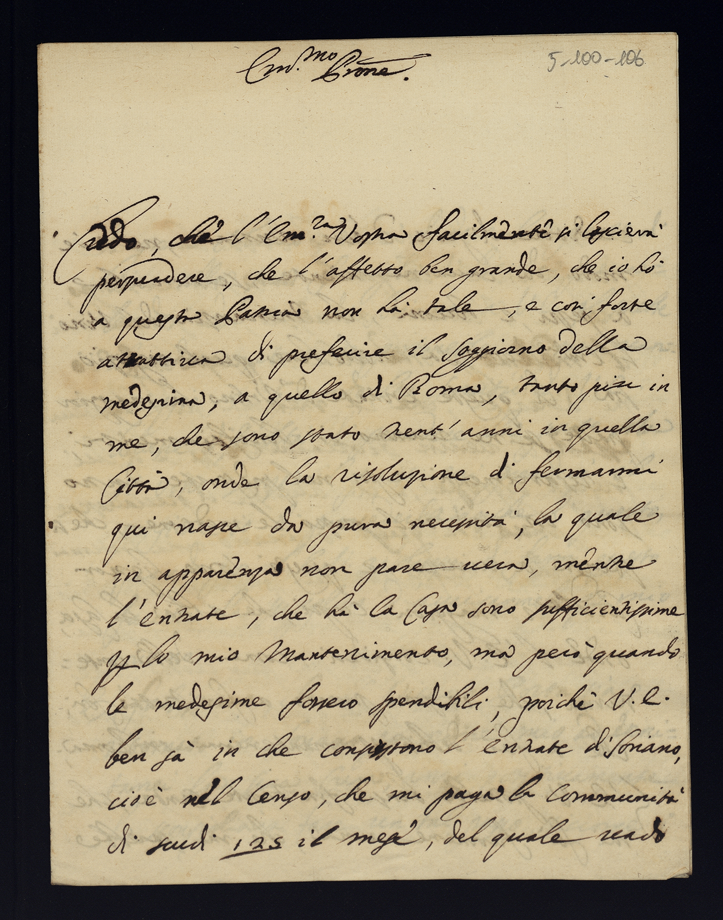 Em.mo Prone.
5-100-106
Credo, che l'Em.za Vostra facilmente si lascierà
persuadere, che l'affetto ben grande, che io hò
a questa Patria non hà tale, e così forte
attrattiva di preferire il soggiorno della
medesima, a quello di Roma, tanto più in
me, che sono stato vent'anni in quella
Città, onde la risoluzione di fermarmi
qui nasce da pura necessità, la quale
in apparenza non pare vera, mentre
l'entrate, che hà la Casa sono sufficientissime
p lo mio mantenimento, ma però quando
le medesime fossero spendibili, poiche V.E.
ben sà in che consistono l'entrate di Soriano,
cioè nel Censo, che mi paga la Communità
di scudi 125 il mese, del quale vado